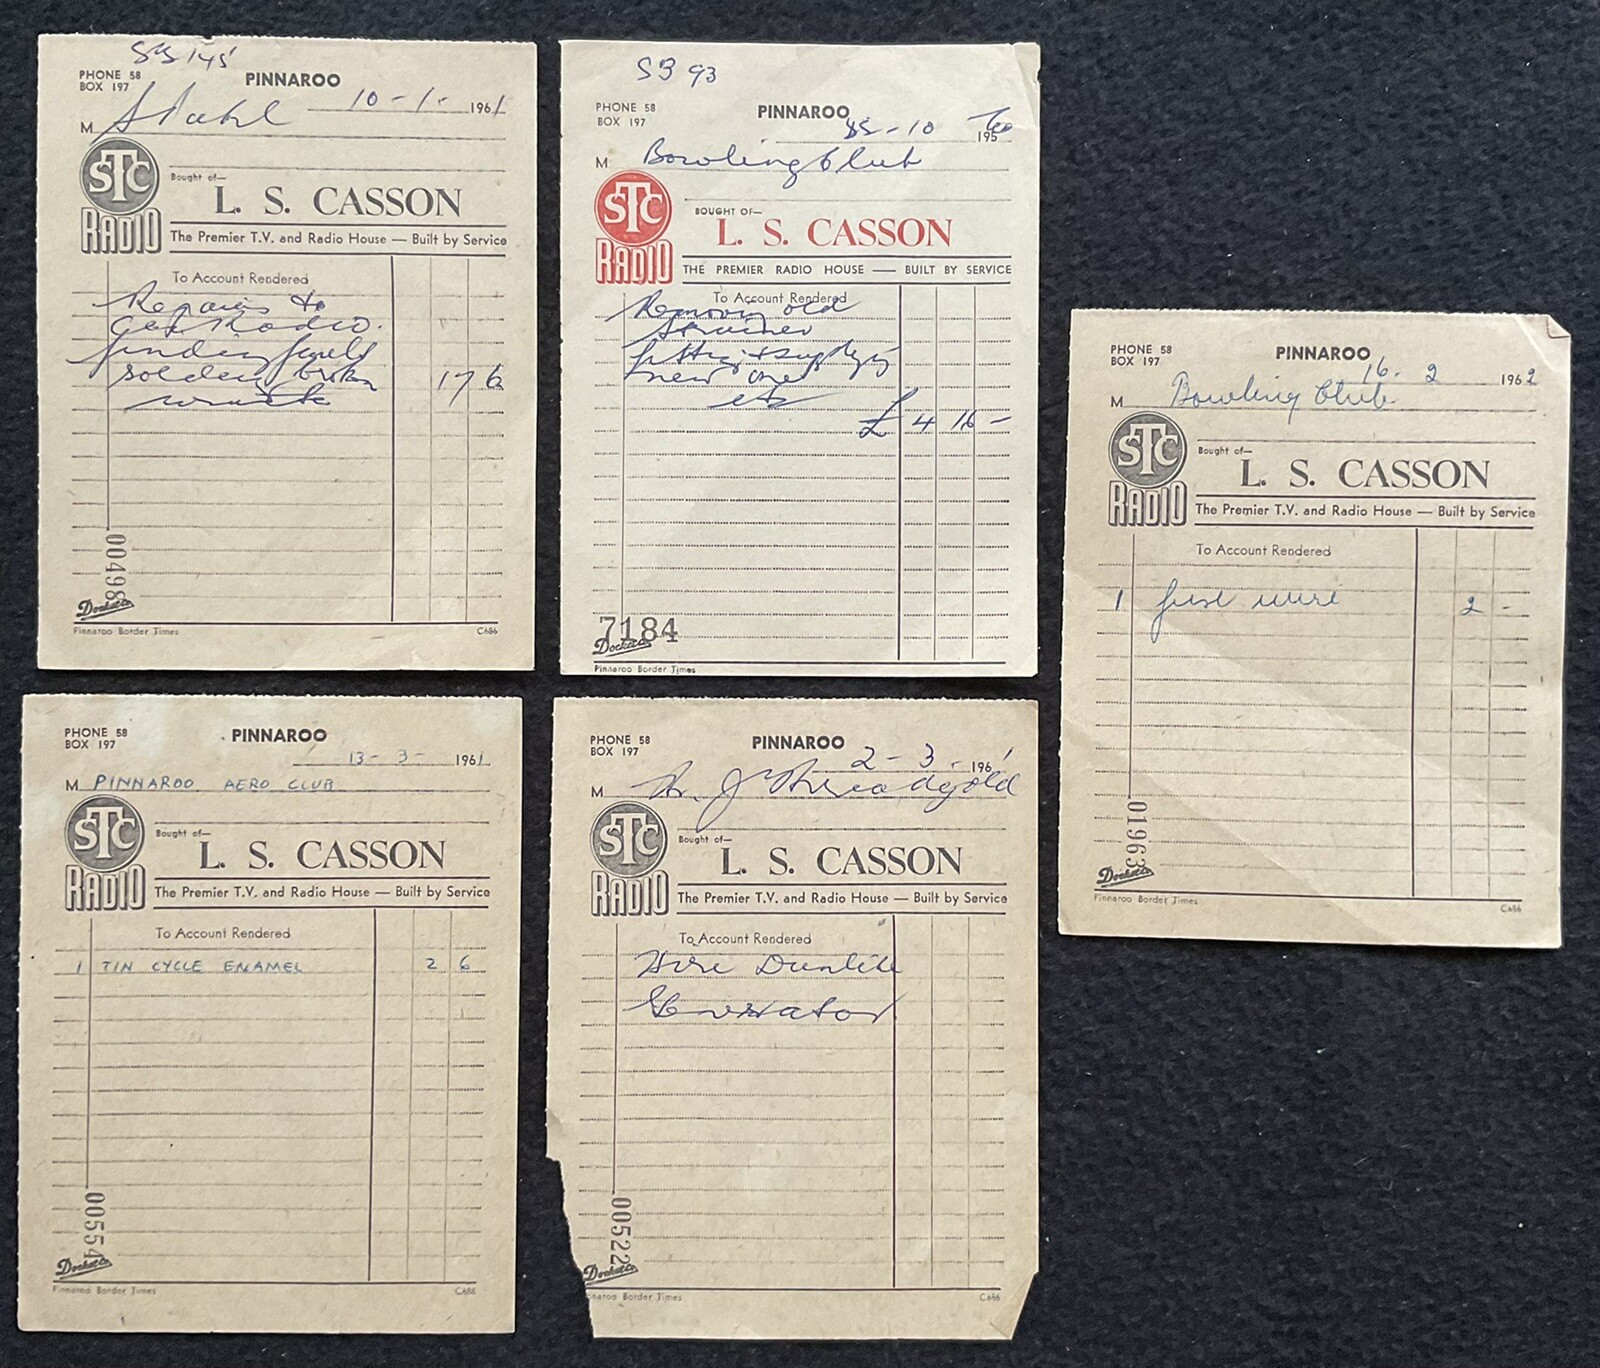 SB 145
PHONE 58
BOX 197
PINNAROO
10-1-1961
M Stahl
STC
RADIO
Bought of—
L. S. CASSON
The Premier T.V. and Radio House — Built by Service
To Account Rendered
Repairs to
Car Radio.
finding fault
solder broken
17 6
00498
Docketa
Pinnaroo Border Times
C686
SB 93
PHONE 58
BOX 197
PINNAROO
-10 195
M Bowling Club
STC
RADIO
BOUGHT OF—
L. S. CASSON
THE PREMIER RADIO HOUSE — BUILT BY SERVICE
To Account Rendered
Removing old
fitting & supplying
new one
etc
£ 4 16 -
7184
Docketa
Pinnaroo Border Times
PHONE 58
BOX 197
PINNAROO
16. 2 1962
M Bowling Club.
STC
RADIO
Bought of—
L. S. CASSON
The Premier T.V. and Radio House — Built by Service
To Account Rendered
1 fuse wire 2 -
01963
Docketa
Pinnaroo Border Times
C686
PHONE 58
BOX 197
PINNAROO
13-3-1961
M PINNAROO AERO CLUB
STC
RADIO
Bought of—
L. S. CASSON
The Premier T.V. and Radio House — Built by Service
To Account Rendered
1 TIN CYCLE ENAMEL 2 6
00554
Docketa
Pinnaroo Border Times
C686
PHONE 58
BOX 197
PINNAROO
2-3-1961
M Mr. J Threadgold
STC
RADIO
Bought of—
L. S. CASSON
The Premier T.V. and Radio House — Built by Service
To Account Rendered
Hire Dunlite
Generator
00522
Docketa
Pinnaroo Border Times
C686